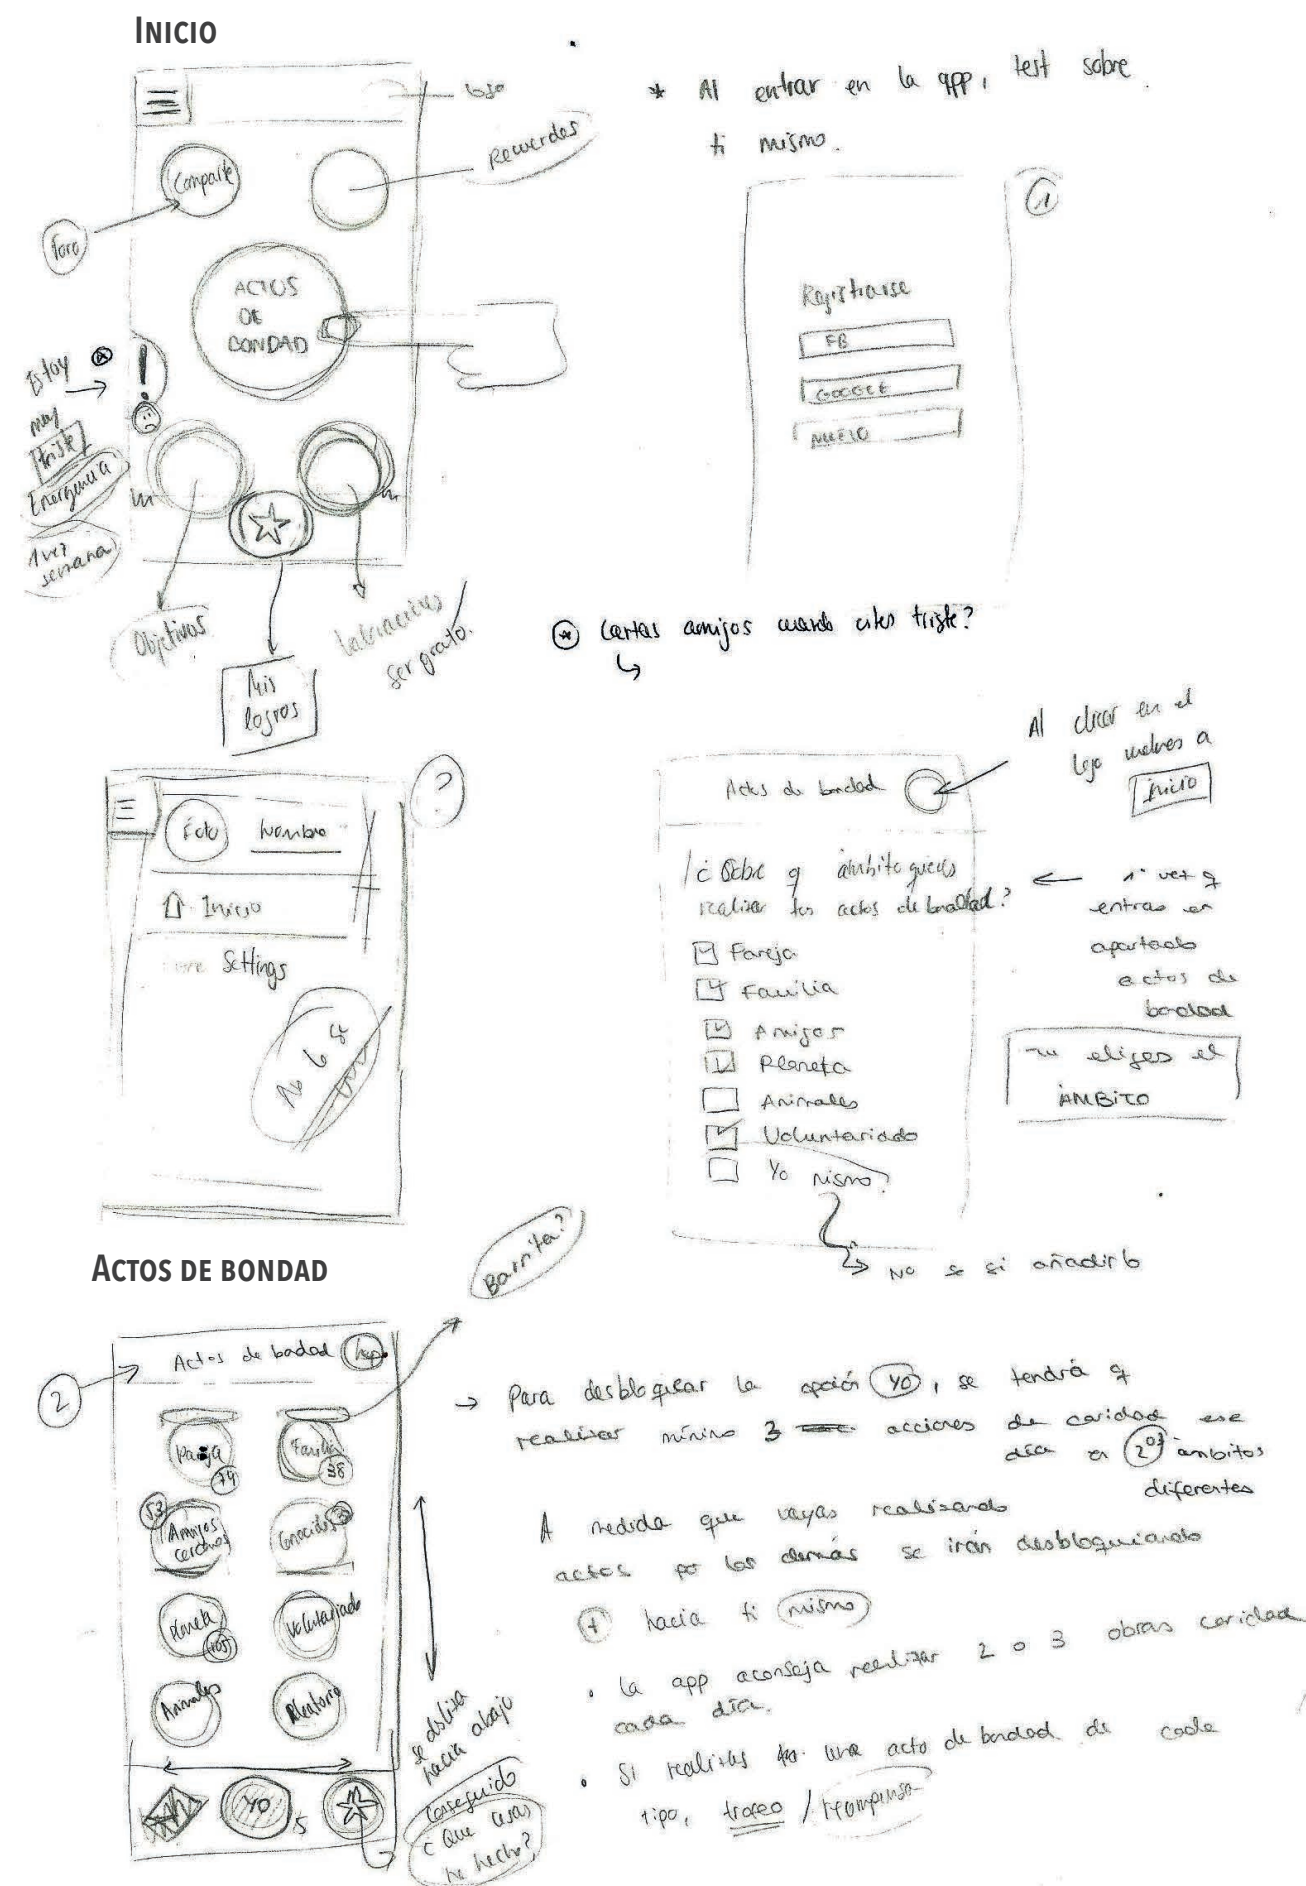 INICIO
logo
Recuerdos
Comparte
Foro
ACTOS
DE
BONDAD
Estoy
muy
triste
Emergencia
1 vez
semana
Objetivos
Mis
logros
ser grato.
* Al entrar en la app, test sobre
ti mismo.
1
Registrarse
FB
GOOGLE
NUEVO
Cartas amigos cuando estes triste?
?
Foto Nombre
Inicio
Settings
No lo sé
Actos de bondad
Al clicar en el
logo vuelves a
Inicio
¿Sobre q ámbito quieres
realizar tus actos de bondad?
Pareja
Familia
Amigos
Planeta
Animales
Voluntariado
Yo mismo?
1ª vez q
entras en
apartado
actos de
bondad
Tu eliges el
ÁMBITO
No se si añadirlo
ACTOS DE BONDAD
Barrita?
2
Actos de bondad
Pareja
74
Familia
38
53
Amigos
cercanos
Conocidos
Planeta
105
Voluntariado
Animales
Aleatorio
YO
5
se desliza
hacia abajo
Conseguido
¿Que cosas
he hecho?
→ Para desbloquear la opción YO, se tendrá q
realizar mínimo 3 acciones de caridad ese
día en 2 ámbitos
diferentes
A medida que vayas realizando
actos por los demás se irán desbloquiando
+ hacia ti mismo
• La app aconseja realizar 2 o 3 obras caridad
cada día.
• Si realizas un acto de bondad de cada
tipo, trofeo / recompensa